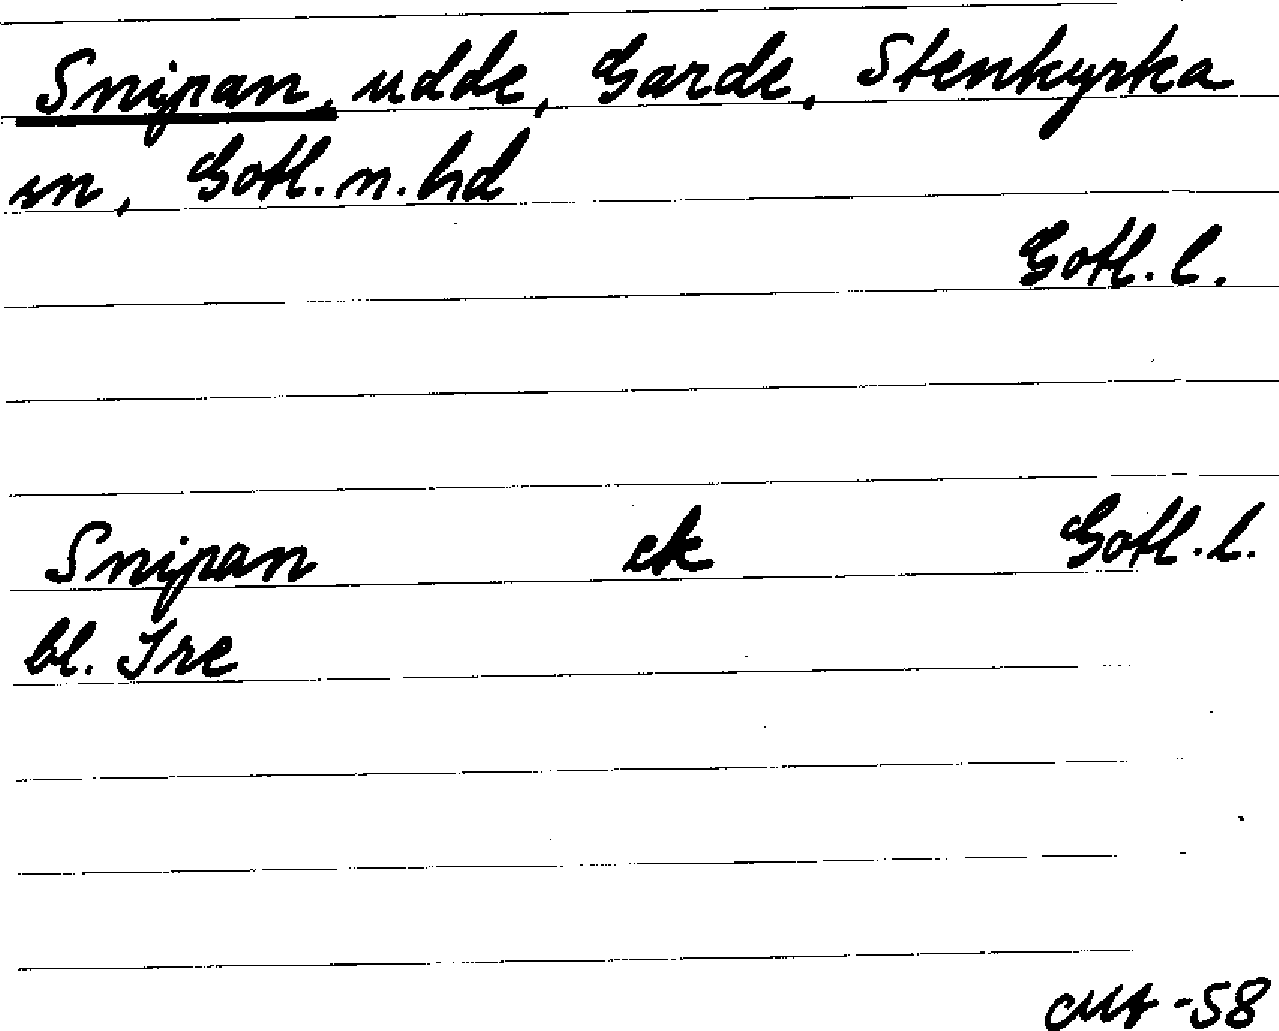 Snipan, udde, Garde, Stenkyrka
sn, Gotl. n. hd
Gotl. l.
Snipan ek Gotl. l.
bl. Ire
-58